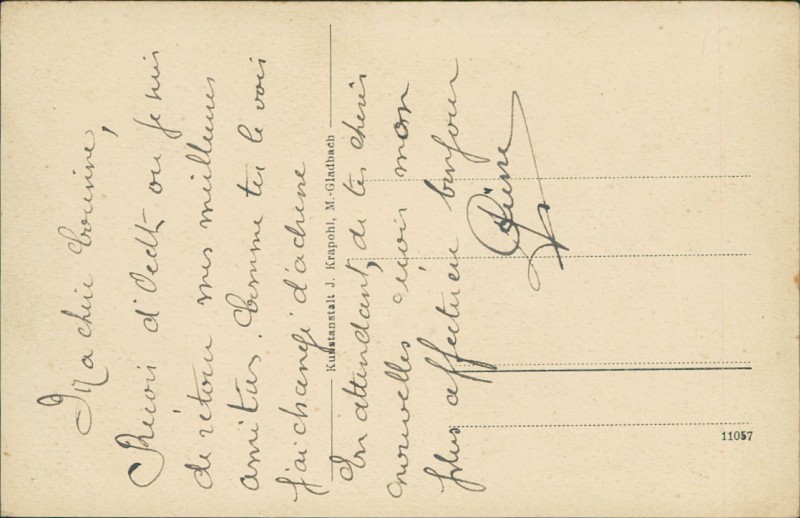 Ma chère Corinne,
Reçois d'Oedt où je suis
de retour mes meilleures
amitiés. Comme tu le vois
j'ai changé d'adresse
En attendant, de tes chères
nouvelles reçois mon
plus affectueux bonjour
Pierre
Kunstanstalt J. Krapohl, M.-Gladbach
11057